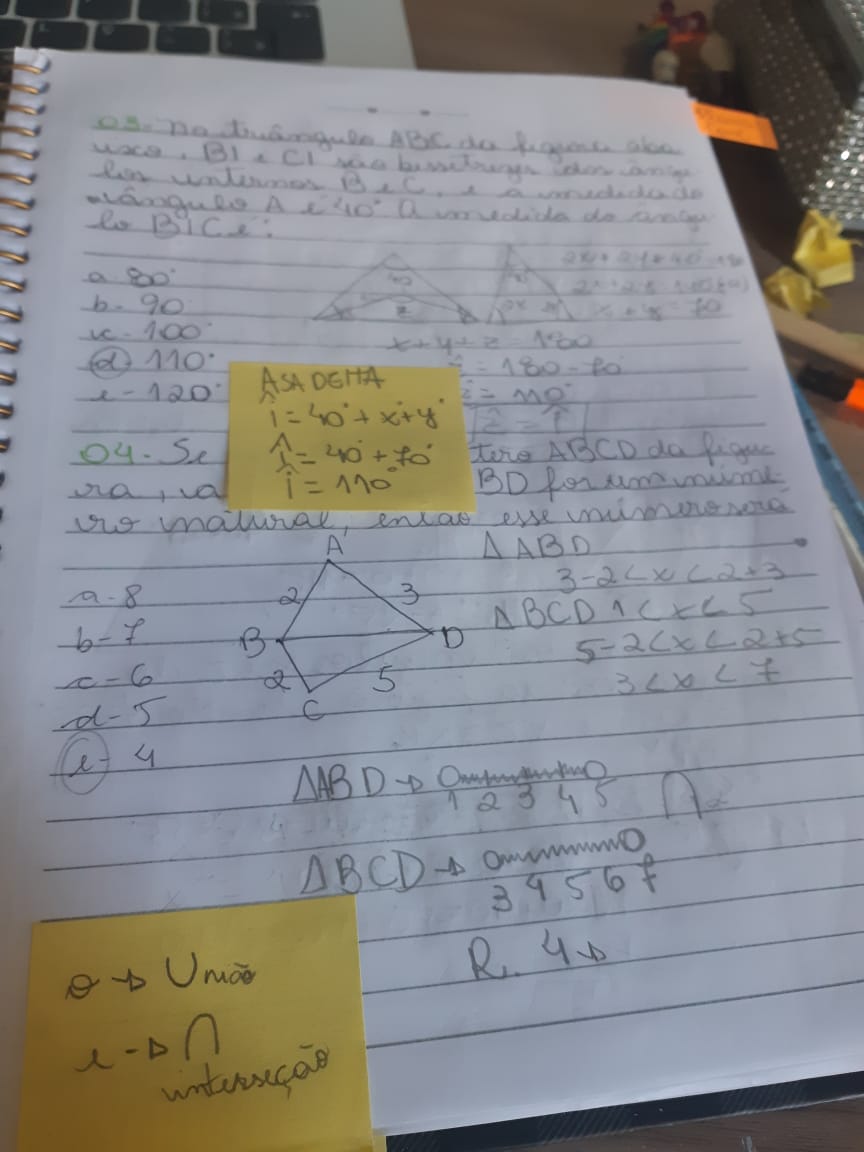 03- No triângulo ABC da figura aba
ixo, BI e CI são bissetrizes dos ângu
los internos B e C, e a medida do
ângulo A é 40° a medida do ângu
lo BIC é:
a- 80°
b- 90
c- 100°
d- 110°
e- 120°
2x + 2y + 40 = 180
x + y = 70
x + y + z = 180
= 180 - 70
= 110°
ASA DELTA
î = 40° + x + y°
î = 40° + 70°
î = 110°
04- Se
tero ABCD da figu
ra, va
BD for um núme
ro natural, então esse número será
A
2
3
B
D
2
5
C
a- 8
b- 7
c- 6
d- 5
e- 4
Δ ABD
3-2 < x < 2+3
Δ BCD 1 < x < 5
5-2 < x < 2+5
3 < x < 7
ΔABD →
1 2 3 4 5
∩
ΔBCD →
3 4 5 6 7
R. 4
o → União
e → ∩
interseção